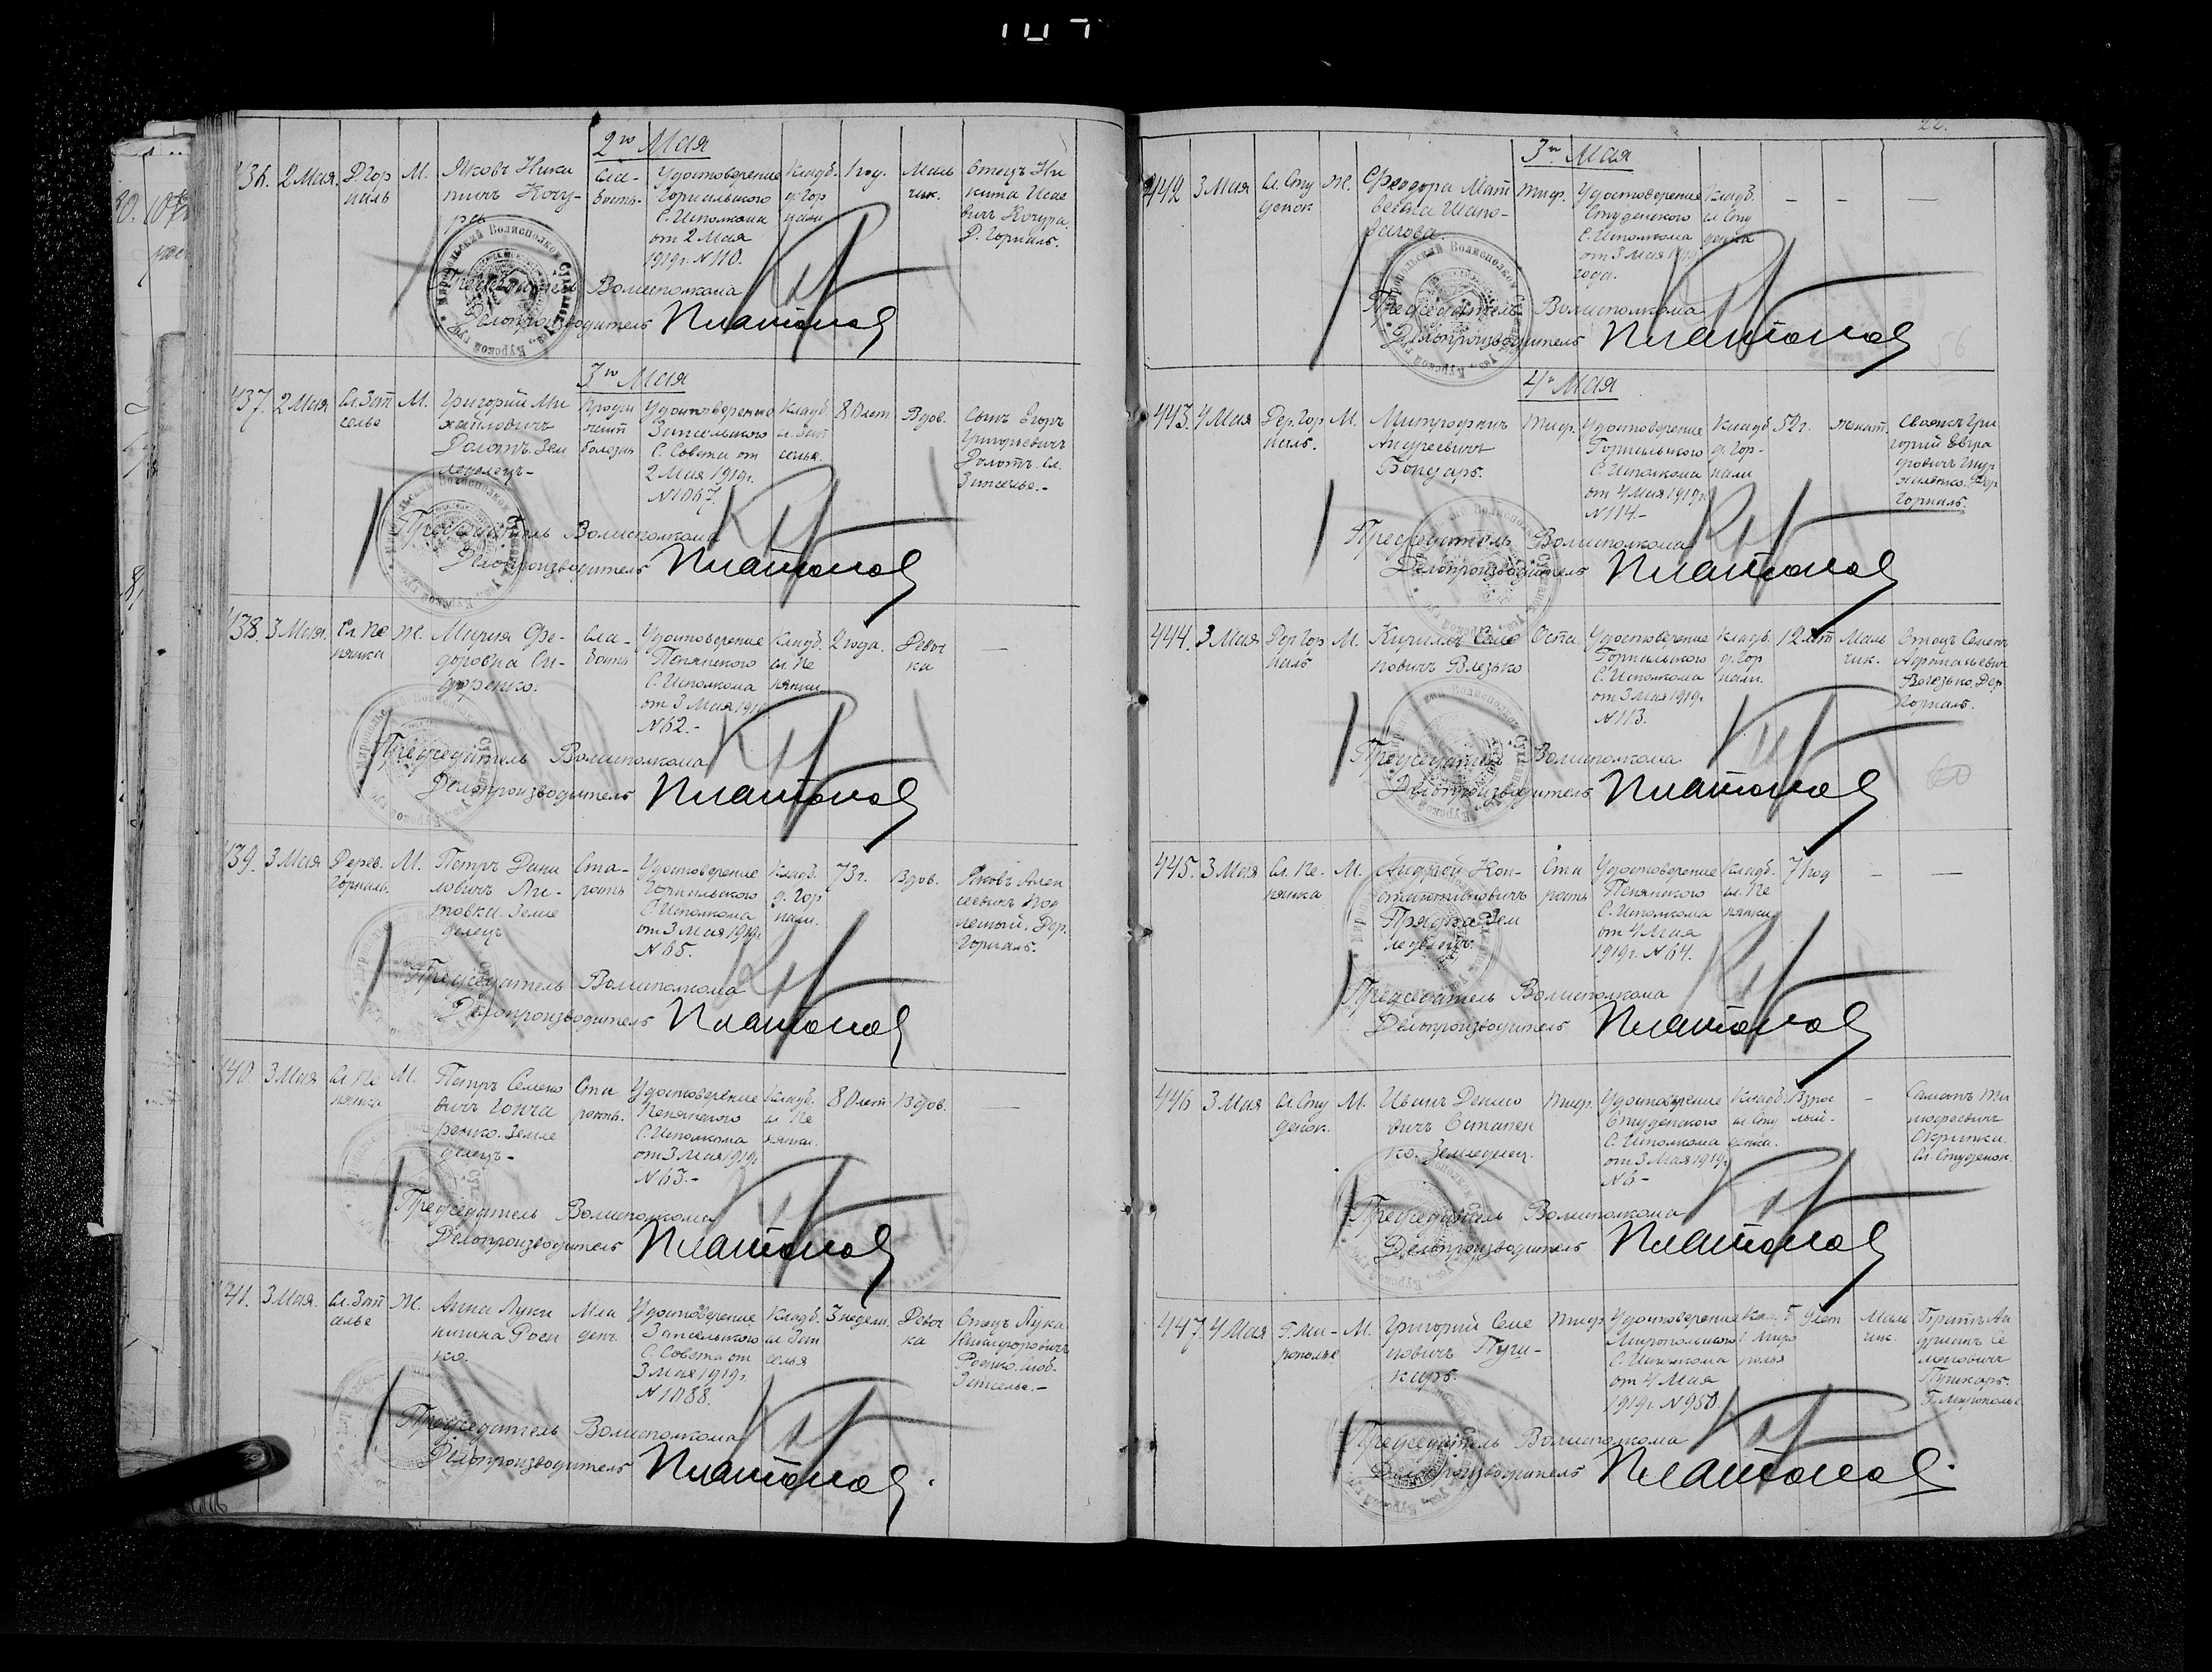 2го Мая
436. 2 Мая. Д. Гор
наль
М.
Яковъ Ники
тичъ Кочу-
ра
Сла-
бость.
Удостоверение
Горнальского
С. Исполкома
от 2 Мая
1919 г. N 110.
Кладб.
д. Гор
нали
1 год.
Маль
чик.
Отецъ Ни
кита Исае
вичъ Кочура.
Д. Горналь.
Председатель Волисполкома
Делопроизводитель Платонов
3го Мая
437. 2 Мая
Сл. Зап
селье
М.
Григорий Ми
хайловичъ
Долотъ. Зем
леделецъ-
Удостоверение
Запсельского
С. Совета от
2 Мая 1919 г.
N 1067.
Кладб.
сл. Зап
селья.
80 лет
Вдов.
Сынъ Егоръ
Григориевичъ
Долотъ. Сл.
Запселье.-
Председатель Волисполкома
Делопроизводитель Платонов
438. 3 Мая.
Сл. Пе
нянка
Ж.
Мария Фе-
доровна Си-
доренко.
Сла-
бость
Удостоверение
Пенянского
С. Исполкома
от 3 Мая 1919
N 62.-
Кладб.
сл. Пе
нянки.
2 года.
Девоч
ка
—
Председатель Волисполкома
Делопроизводитель Платонов
439. 3 Мая
Дерев.
Горналь.
М.
Петръ Дани
ловичъ
Земле
делецъ
Ста-
рость
Удостоверение
Горнальского
С. Исполкома
от 3 Мая 1919 г.
N 65.
Кладб.
д. Гор
нали.
73 г.
Вдов.
Яковъ Алек
сеевичъ
Дер.
Горналь.
Председатель Волисполкома
Делопроизводитель Платонов
440 3 Мая
Сл. Пе
нянка
М.
Петръ Семено
вичъ Гонча
ренко. Земле
делецъ-
Ста
рость.
Удостоверение
Пенянского
С. Исполкома
от 3 Мая 1919 г.
N 63.-
Кладб.
сл. Пе
нянки.
80 лет
Вдов.
—
Председатель Волисполкома
Делопроизводитель Платонов
441. 3 Мая.
Сл. Зап
селье
Ж.
Анна Луки
нична Роен
ко.
Мла
ден.
Удостоверение
Запсельского
С. Совета от
3 Мая 1919 г.
N 1088.
Кладб.
сл. Зап
селья
3 недели.
Девоч
ка
Отецъ Лука
Никифоровичъ
Роенко. Слоб.
Запселье.-
Председатель Волисполкома
Делопроизводитель Платонов.
22.
3го Мая
442 3 Мая
Сл. Сту
денок
Ж.
Феодора Мат
веевна Шапо-
валова.
Тиф.
Удостоверение
Студенского
С. Исполкома
от 3 Мая 1919
года.
Кладб.
сл. Сту
денка
— — —
Председатель Волисполкома
Делопроизводитель Платонов
4го Мая
443. 4 Мая
Дер. Гор
наль.
М.
Митрофанъ
Андреевичъ
Бондарь.
Тиф.
Удостоверение
Горнальского
С. Исполкома
от 4 Мая 1919 г.
N 114.-
Кладб
д. Гор-
нали
52 г.
женат.
Своякъ Гри
горий Евгра
фовичъ
Дер
Горналь.
Председатель Волисполкома
Делопроизводитель Платонов
444. 3 Мая
Дер. Гор
наль
М.
Кириллъ Семе
новичъ Влезько
Оспа.
Удостоверение
Горнальского
С. Исполкома
от 3 Мая 1919 г.
N 113.
Кладб.
д. Гор
нали.
12 лет
Маль
чик.
Отецъ Семенъ
Дер
Горналь.
Председатель Волисполкома
Делопроизводитель Платонов
445. 3 Мая
Сл. Пе-
нянка
М.
Андрей Кон-
стантиновичъ
Прядка Зем
леделецъ.
Ста
рость
Удостоверение
Пенянского
С. Исполкома
от 4 Мая
1919 г. N 64.
Кладб.
сл. Пе
нянки
71 год
— —
Председатель Волисполкома
Делопроизводитель Платонов
446 3 Мая
Сл. Сту
денок.
М.
Иванъ Денисо
вичъ Остапен
ко. Земледелец.
Тиф.
Удостоверение
Студенского
С. Исполкома
от 3 Мая 1919 г.
N 6-
Кладб.
сл. Сту
денка.
Взрос
лый.-
-
Ти
мофеевичъ
Скрипка.
Сл. Студенок.
Председатель Волисполкома
Делопроизводитель Платонов
447. 4 Мая
Г. Ми-
рополье
М.
Григорий Семе
новичъ Пуш-
карь.
Тиф
Удостоверение
Миропольского
С. Исполкома
от 4 Мая
1919 г. N 950.
Кладб
г. Миро
полья
9 лет
Маль
чик.
Братъ Ан
дриянъ Се
меновичъ
Пушкарь.
Г. Мирополье
Председатель Волисполкома
Делопроизводитель Платонов.